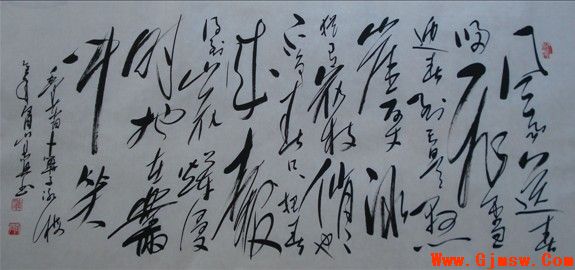 风雨送春
归飞雪
迎春到已是悬
崖百丈冰
犹有花枝俏俏也
不争春只把春
来報
待到山花烂漫
时她在丛
中笑
毛主席卜算子咏梅
Www.Gjmsw.Com